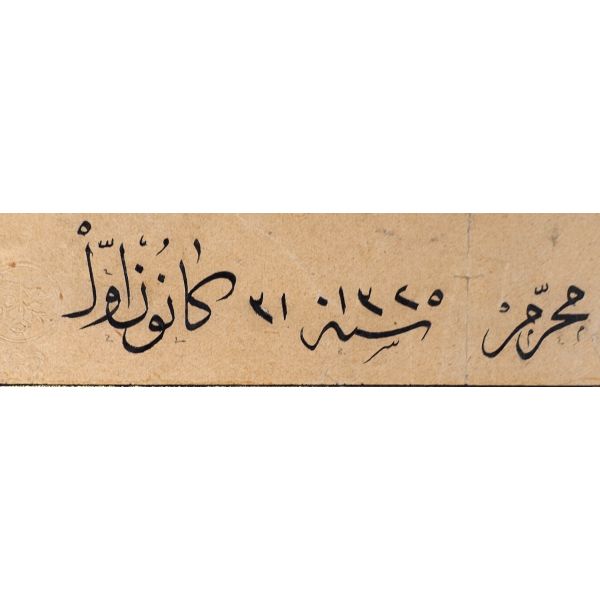 محرّم سنه ١٣٢٥ ٣١ كانون اوّل